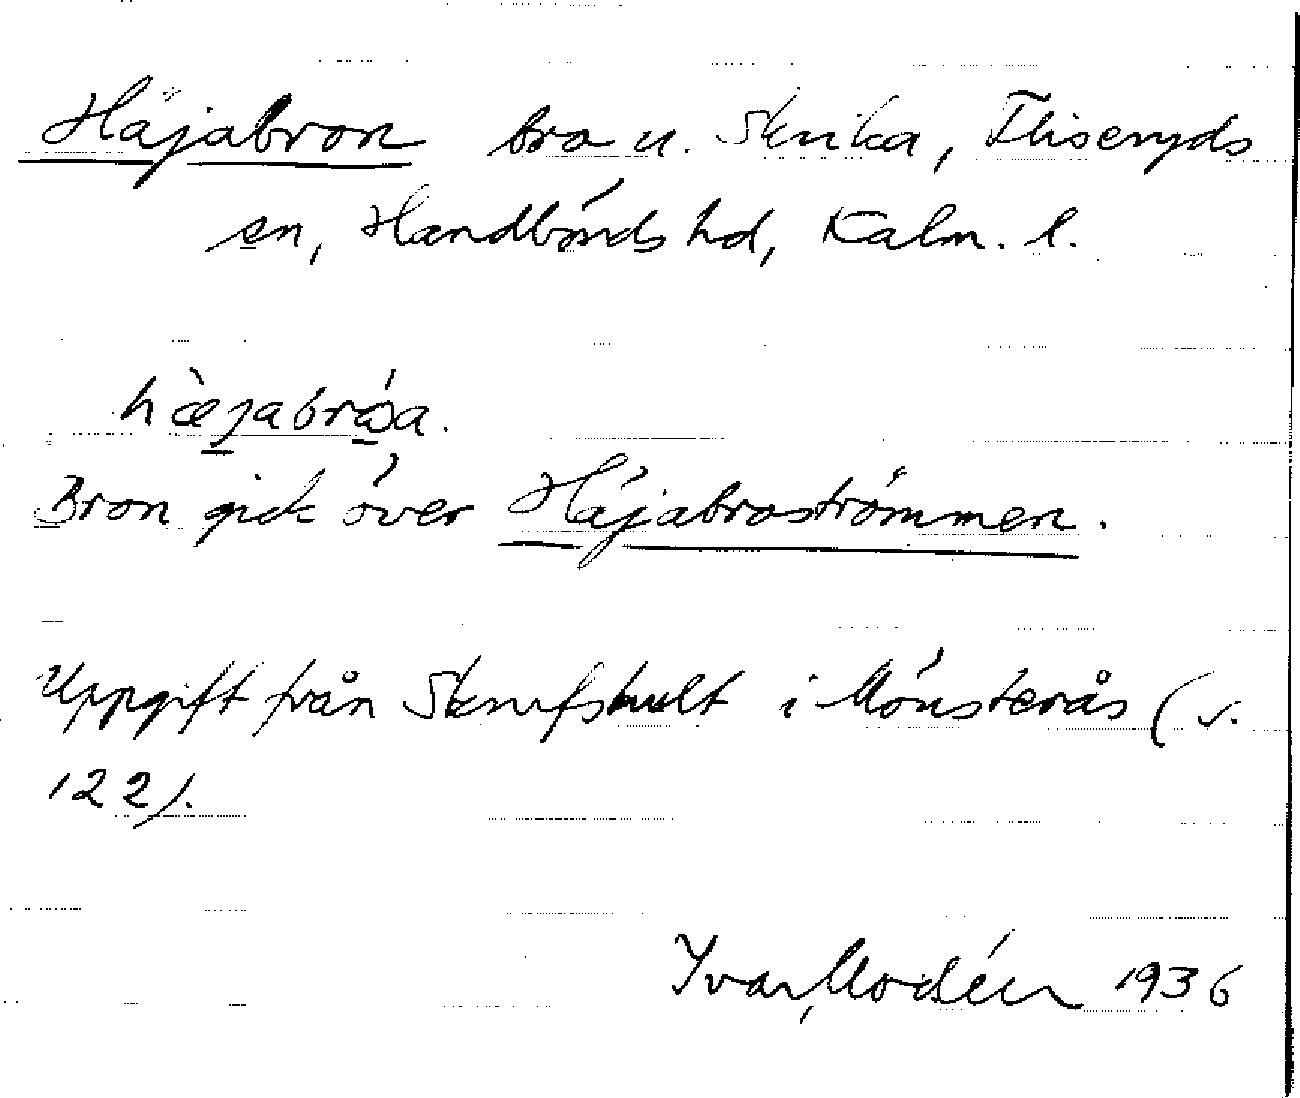 Häjabron bro u. Skrika, Fliseryds
sn, Handbörds hd, Kalm. l.
hæ̀jabróa.
Bron gick över Häjabroströmmen.
Uppgift från Skrufshult i Mönsterås (s.
122).
Yvar Modéer 1936